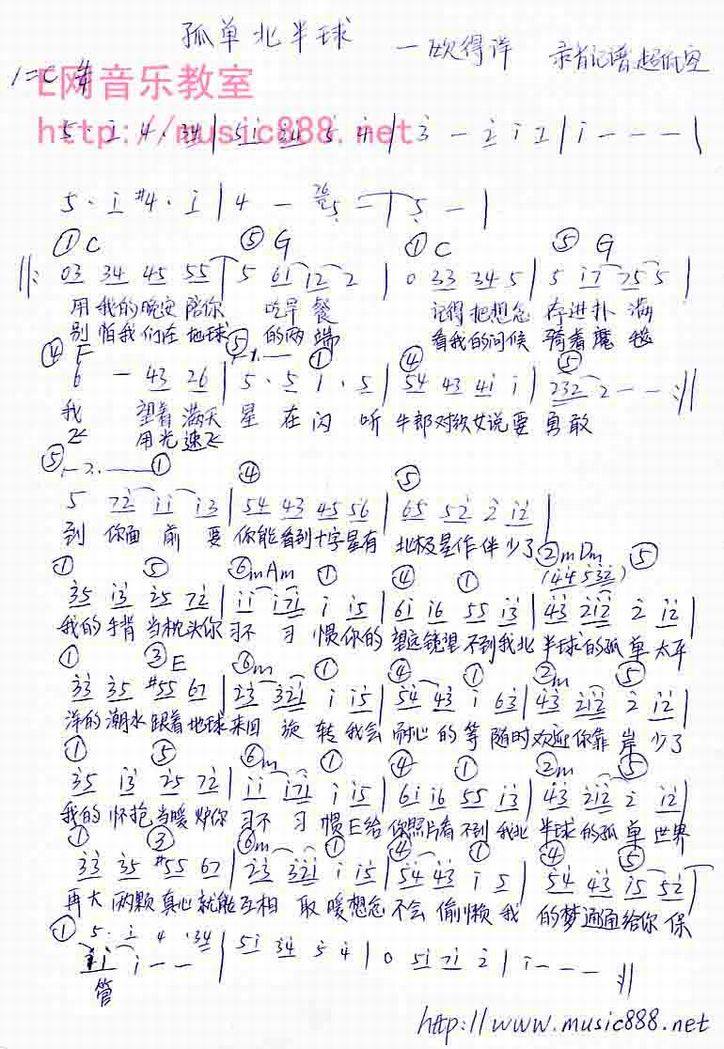 孤单北半球 — 欧得洋
1=C
E网音乐教室
http://music888.net
5 · i 4 · 34 | 5i 34 5 4 | 3 — 2 i 2 | i — — — |
5 · i #4 · i | 4 — 5 — | 5 — |
① C ⑤ G ① C ⑤ G
||: 03 34 45 55 | 5 61 12 2 | 0 33 34 5 | 5 i7 75 5 |
用我的晚安陪你 吃早餐 记得把想念存进扑满
别怕我们在地球 的两端 看我的问候骑着魔毯
④ F ⑤ —1.— ① ④ ⑤
6 — 43 26 | 5 · 5 1 · 5 | 54 43 41 1 | 232 2 — — :||
我 望着满天 星在闪 听牛郎对织女说要勇敢
飞 用光速飞
⑤ —2.— ① ④ ⑤
5 72 ii i3 | 54 43 45 56 | 65 52 2 i2 |
到你面前 要你能看到十字星有 北极星作伴 少了
① ⑤ ⑥mAm ① ④ ① ②mDm ⑤
(44 532)
35 i3 25 72 | ii i71 i i5 | 61 i6 55 i3 | 43 2i2 2 i2 |
我的手臂当枕头你习不习惯你的望远镜望不到我北半球的孤单太平
① ③E ⑥m ① ④ ① ②m ⑤
33 35 #55 67 | 23 321 i i5 | 54 43 i 63 | 43 2i2 2 i2 |
洋的潮水跟着地球来回旋转我会耐心的等随时欢迎你靠岸少了
① ⑤ ⑥m ① ④ ① ②m ⑤
35 i3 25 72 | ii i71 i i5 | 61 i6 55 i3 | 43 2i2 2 i2 |
我的怀抱当暖炉你习不习惯E给你照片看不到我北半球的孤单世界
① ③ ⑥m ① ④ ① ④ ⑤
33 35 #55 67 | 23 321 i i5 | 54 43 i 5 | 54 43 i5 52 |
再大两颗真心就能互相取暖想念不会偷懒我的梦通通给你保
① 5 · i 4 · 34
ii i — — | 5i 34 5 4 | 0 5i 7i 2 | i — — — :||
管
http://www.music888.net